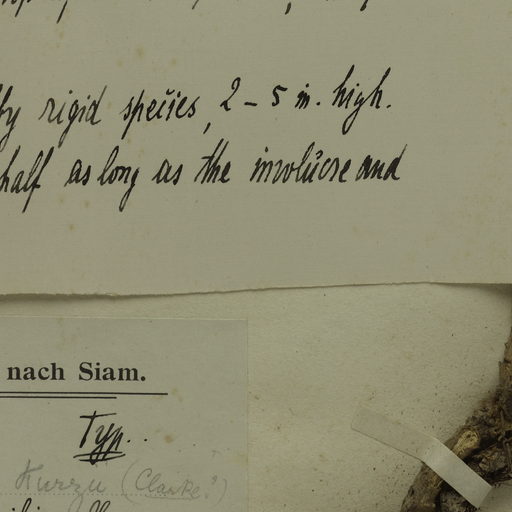 by rigid species, 2 - 5 in. high.
half as long as the involucre and
nach Siam.
Typ.
Kurzii (Clarke?)